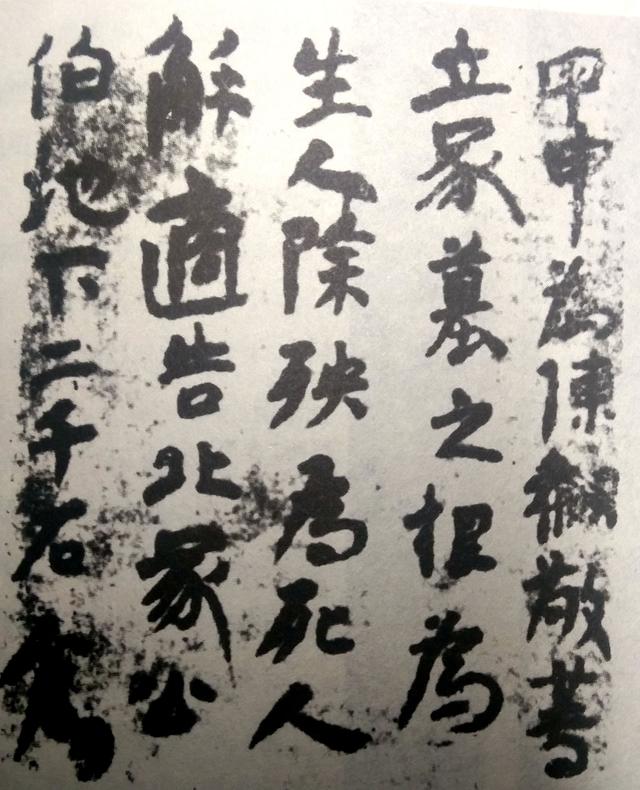 甲申為陳叔敬等
立冢墓之根為
生人除殃為死人
解適告北冢公
伯地下二千石